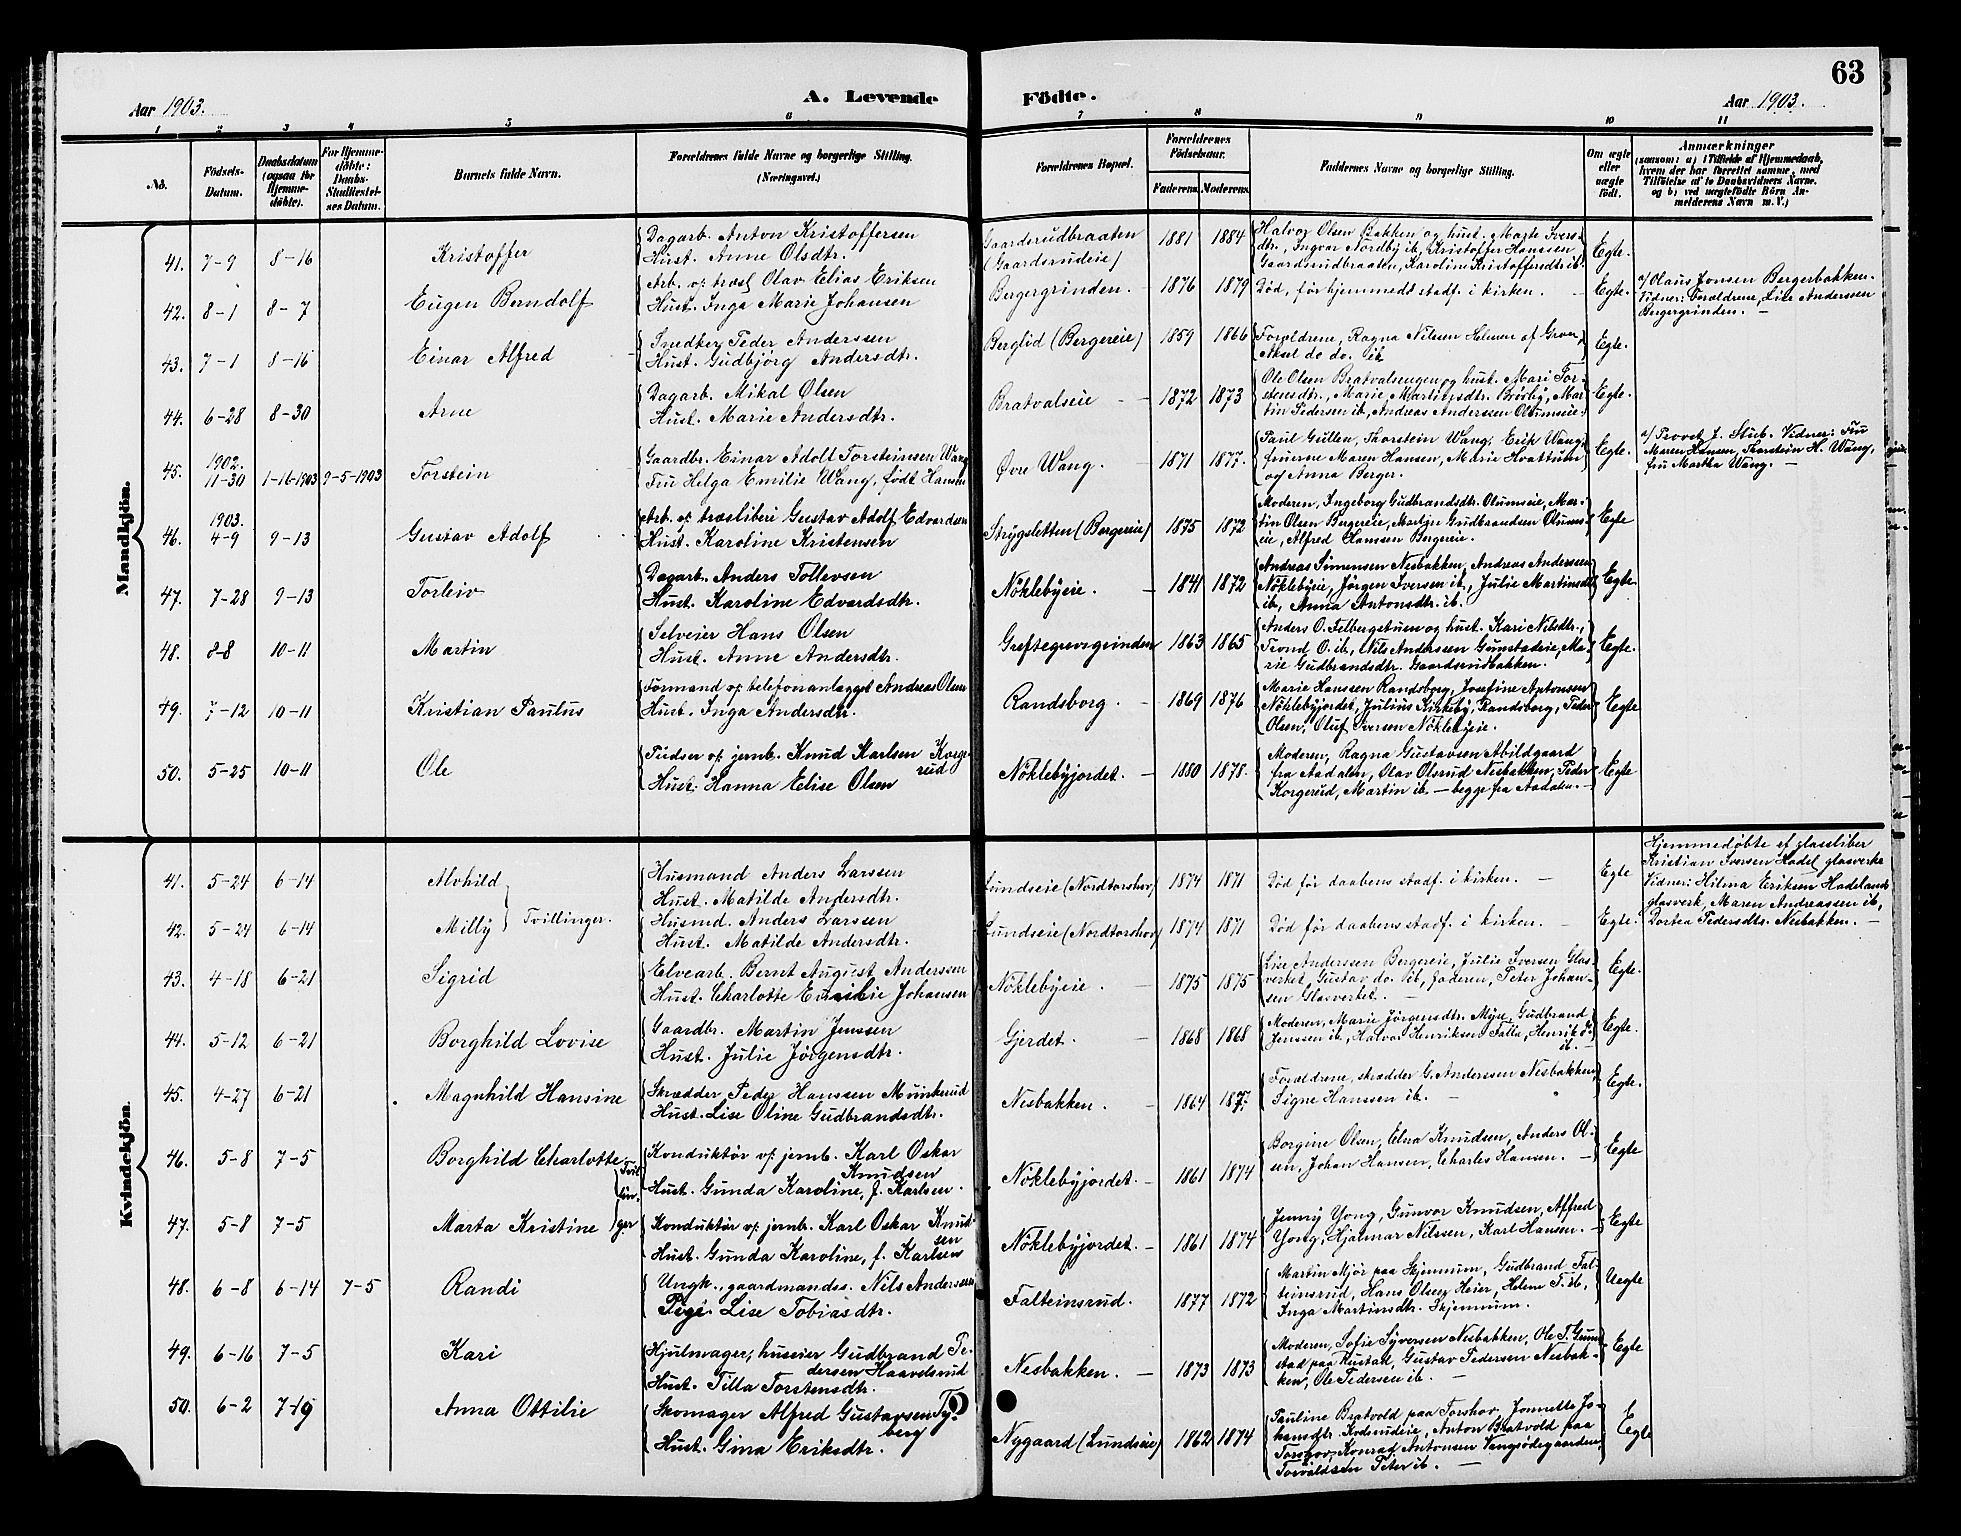 63
Aar 1903.
A. Levende Födte.
Aar 1903.
1 2 3 4 5 6 7 8 9 10 11
No.
Födsels-Datum.
Daabsdatum (ogsaa for Hjemmedöbte).
For Hjemmedöbte: Daabs-Stadfæstelses Datum.
Barnets fulde Navn.
Forældrenes fulde Navne og borgerlige Stilling. (Næringsvei.)
Forældrenes Bopæl.
Forældrenes Födselsaar.
Faderens. Moderens.
Faddernes Navne og borgerlige Stilling.
Om ægte eller uægte födt.
Anmærkninger
(saasom: a) i Tilfælde af Hjemmedaab, hvem der har forrettet samme, med Tilföielse af to Daabsvidners Navne, og b) ved uægtefödte Börn Anmelderens Navn m. V.)
Mandkjön.
41. 7-9 8-16 Kristoffer
Dagarb. Anton Kristoffersen
Hust. Anne Olsdtr.
Gaarderudbraaten (Gaardsrudeie) 1881 1884
Halvor Olsen Bakken og hust. Marte Iversdtr., Ingvar Nordby ib, Kristoffer Hanssen Gaardsrudbraaten, Karoline Kristoffersdtr ib. Egte.
42. 8-1 8-7 Eugen Berndolf
Arb. v. træsl. Olav Elias Eriksen
Hust. Inga Marie Johansen
Bergergrinden. 1876 1879 Död, för hjemmedb stadf. i kirken. Egte.
a/ Olaus Jonsen Bergerbakken. Vidner: Foræeldrene, Lise Anderssen Bergergrinden.
43. 7-1 8-16 Einar Alfred
Snedker Peder Anderssen
Hust. Gudbjörg Andersdtr.
Berglid (Bergereie) 1859 1866
Forældrene, Ragna Nilsen Helmen af Gran, Aksel do do. ib. Egte.
44. 6-28 8-30 Arne
Dagarb. Mikal Olsen
Hust. Marie Andersdtr.
Bratvalseie 1872 1873
Ole Olsen Bratvalsengen og hust. Mari Torstensdtr., Marie Martinsdtr. Bröby, Martin Pedersen ib, Andreas Anderssen Olumseie. Egte.
45. 1902. 11-30 1-16-1903 9-5-1903 Torstein
Gaardbr. Einar Adolf Torsteinsen Wang
Fru Helga Emilie Wang, födt Hansen
Øvre Wang. 1871 1877.
Paul Gullen, Thorstein Wang, Erik Wang, fruerne Maren Hansen, Marie Hvattum og Anna Berger. Egte.
a/ Provst J. Stub. Vidner: Fru Maren Hansen, Thorstein H. Wang, fru Martha Wang.
46. 1903. 4-9 9-13 Gustav Adolf
Arb. v. træsliberi Gustav Adolf Edvardsen
Hust. Karoline Kristensen
Strygsletten (Bergereie) 1875 1872
Moderen, Ingeborg Gudbrandsdtr. Olumseie, Martin Olsen Bergereie, Martin Gudbrandsen Olumseie, Alfred Hansen Bergereie. Egte
47. 7-28 9-13 Torleiv
Dagarb. Anders Tollevsen
Hust. Karoline Edvardsdtr.
Nöklebyeie. 1841 1872
Andreas Simensen Nesbakken, Andreas Anderssen Nöklebyeie, Jörgen Iversen ib., Julie Martinsdtr ib, Anna Antonsdtr. ib. Egte
48. 8-8 10-11 Martin
Selveier Hans Olsen
Hust. Anne Andersdtr.
Greftegrevgrinden 1863 1865
Anders O. Felbergstuen og hust. Kari Nilsdtr., Trond O. ib, Nils Anderssen Gunstaderie, Marie Gudbrandsdtr. Gaardsrudbakken. Egte.
49. 7-12 10-11 Kristian Paulus
Formand v. telefonanlægget Andreas Olsen
Hust. Inga Andersdtr.
Randsborg. 1869 1876
Marie Hanssen Randsborg, Josefine Antonsen Nöklebyjordet, Julius Kirkeby, Randsborg, Peder Olsen, Oluf Iversen Nöklebyeie. Egte
50. 5-25 10-11 Ole
Pudser v. jernb. Knud Karlsen Korgerud
Hust. Hanna Elise Olsen
Nöklebyjordet. 1880 1878.
Moderen, Ragna Gustavsen Abildgaard fra Aadalen, Olav Olsrud Nesbakken, Peder Korgerud, Martin ib. — begge fra Aadalen. Egte
Kvindekjön.
41. 5-24 6-14 Alvhild
Husmand Anders Larssen
Hust. Matilde Andersdtr.
Lundseie (Nordtorshov) 1874 1871 Död för daabens stadf. i kirken. Egte
Hjemmedöbte af glassliber Kristian Iversen Hadel. glasverk. Vidner: Hilma Eriksen Hadelands glasverk, Maren Andreassen ib, Dortea Pedersdtr. Nesbakken.
42. 5-24 6-14 Milly
Tvillinger.
Husmd. Anders Larssen
Hust. Matilde Andersdtr.
Lundseie (Nordtorshov) 1874 1871 Död för daabens stadf. i kirken. Egte.
43. 4-18 6-21 Sigrid
Elvearb. Bernt August Anderssen
Hust. Charlotte Emilie Johansen
Nöklebyeie. 1875 1875
Lise Anderssen Bergereie, Julie Iversen Glasverket, Gustav do. ib, faderen, Peter Johansen Glasverket. Egte.
44. 5-12 6-21 Borghild Lovise
Gaardbr. Martin Jenssen
Hust. Julie Jörgensdtr.
Gjerdet. 1868 1868
Moderen, Marie Jörgensdtr. Myse, Gudbrand Jenssen ib., Halvor Henriksen Falla, Henrik P. ib. Egte.
45. 4-27 6-21 Magnhild Hansine
Skrædder Peder Hanssen Munkerud
Hust. Lise Oline Gudbrandsdtr.
Nesbakken. 1864 1877.
Forældrene, skrædder G. Anderssen Nesbakken, Signe Hanssen ib. Egte.
46. 5-8 7-5 Borghild Charlotte
Konduktör v. jernb. Karl Oskar Knudsen
Hust. Gunda Karoline, f. Karlsen.
Nöklebyjordet. 1861 1874
Borgine Olsen, Elna Knudsen, Anders Olsen, Johan Hansen, Charles Hansen. Egte
Tvillinger
47. 5-8 7-5 Marta Kristine
Konduktör v. jernb. Karl Oskar Knudsen
Hust. Gunda Karoline, f. Karlsen
Nöklebyjordet. 1861 1874
Jenny Yong, Gunvor Knudsen, Alfred Yong, Hjalmar Nilssen, Karl Hansen. Egte
48. 6-8 6-14 7-5 Randi
Ungk., gaardmandss. Nils Anderssen
Pige. Lise Tobiasdtr.
Falteinsrud. 1877 1872
Martin Mjör paa Skjennum, Gudbrand Falteinsrud, Hans Olsen Heier, Helene T. ib, Inga Martinsdtr. Skjennum. Uegte
49. 6-16 7-5 Kari
Hjulmager, huseier Gudbrand Pedersen Haavelsrud
Hust. Tilla Torstensdtr.
Nesbakken. 1873 1873
Moderen, Sofie Syversen Nesbakken, Ole T. Gunstad paa Rustad, Gustav Pedersen Nesbakken, Ole Pedersen ib. Egte
50. 6-2 7-19 Anna Ottilie
Skomager Alfred Gustavsen Tyberg
Hust. Gina Eriksdtr.
Nygaard (Lundseie) 1862 1874
Pauline Bratvold paa Torshov, Jonnette Johansdtr. Kodsrudeie, Anton Bratvold paa Torshov, Konrad Antonsen Vangsödegaarden, Torvaldsen Peter ib. Egte